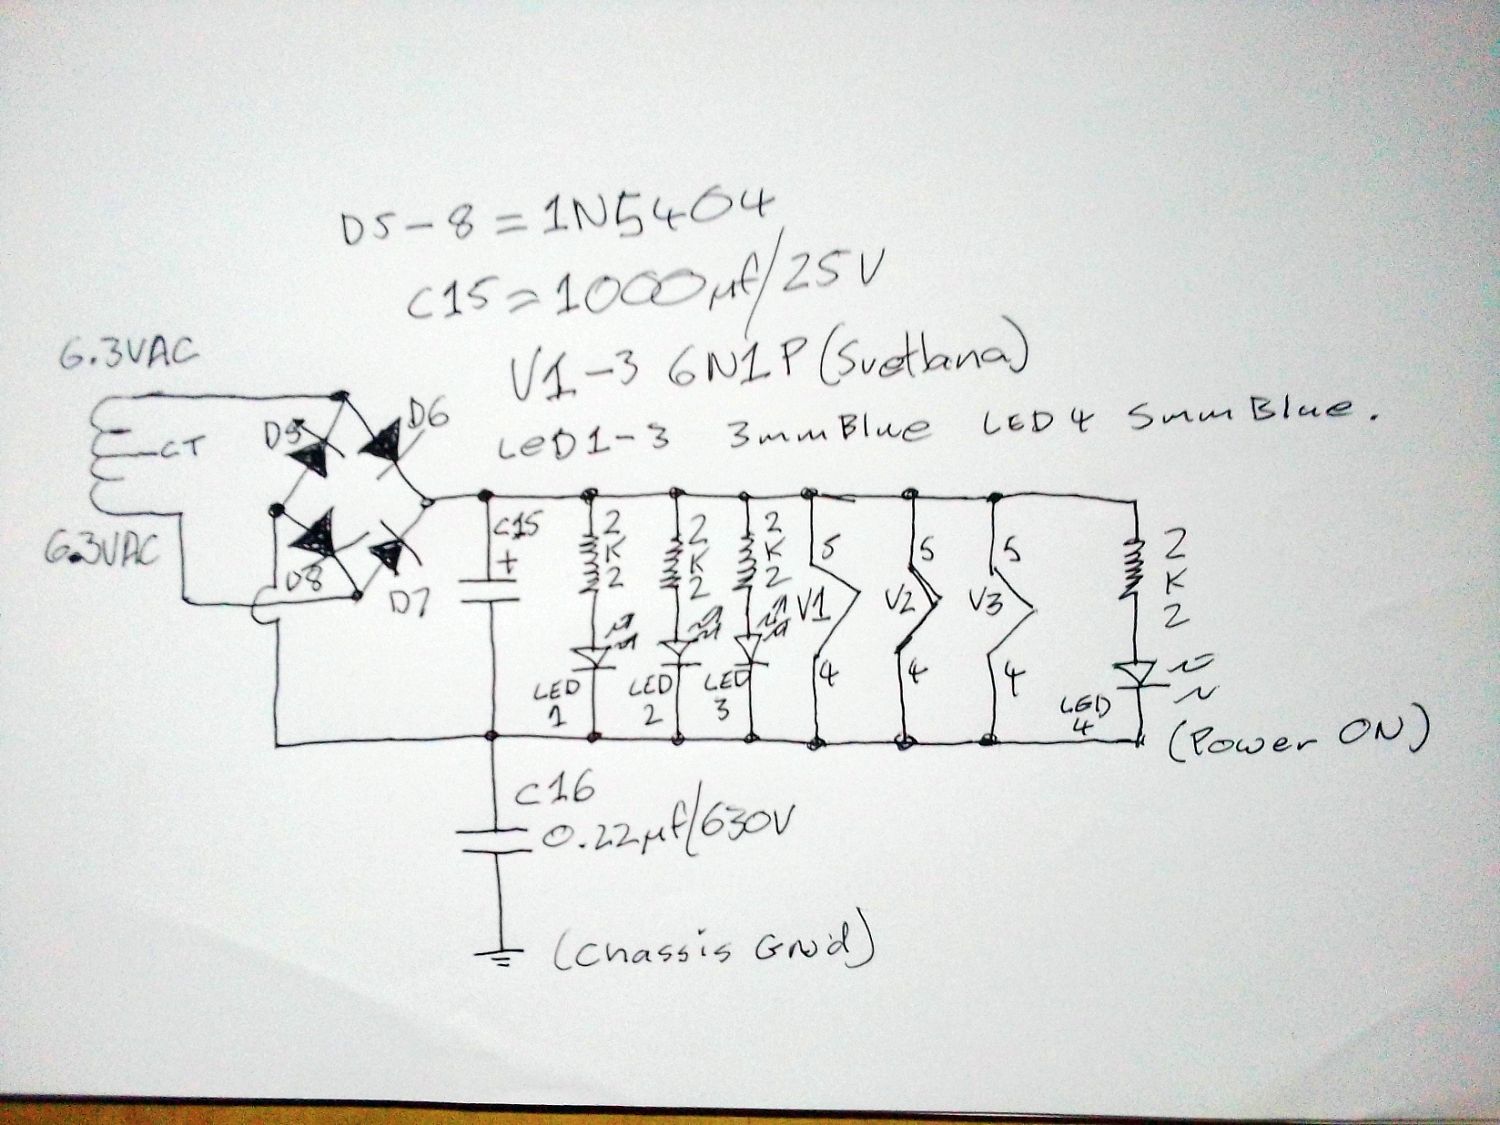 D5-8 = 1N5404
C15 = 1000µf/25V
V1-3 6N1P (Svetlana)
LED1-3 3mmBlue LED4 5mmBlue.
6.3VAC
CT
6.3VAC
D5
D6
D8
D7
C15
+
2K2
2K2
2K2
2K2
LED 1
LED 2
LED 3
V1
5
4
V2
5
4
V3
5
4
LED 4
(Power ON)
C16
0.22µf/630V
(Chassis GN'd)